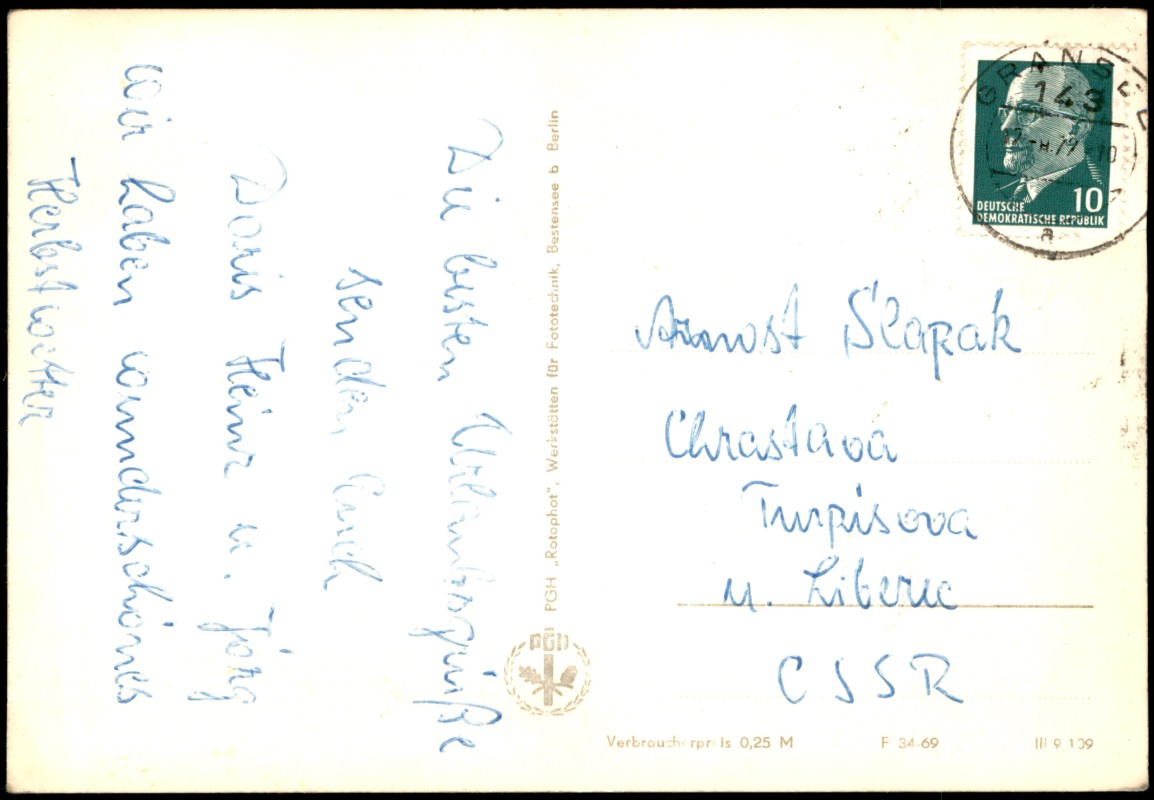 Die besten Urlaubsgrüße
senden Euch
Doris Heinz u. Jörg
wir haben wunderschönes
Herbstwetter
PGH „Rotophot", Werkstätten für Fototechnik, Bestensee b Berlin
PGH
GRANSEE
143
79
10
a
DEUTSCHE
DEMOKRATISCHE REPUBLIK
10
Arnost Slapak
Chrastava
Turpisova
u. Liberec
CSSR
Verbraucherpreis 0,25 M F 34-69 III 9 109